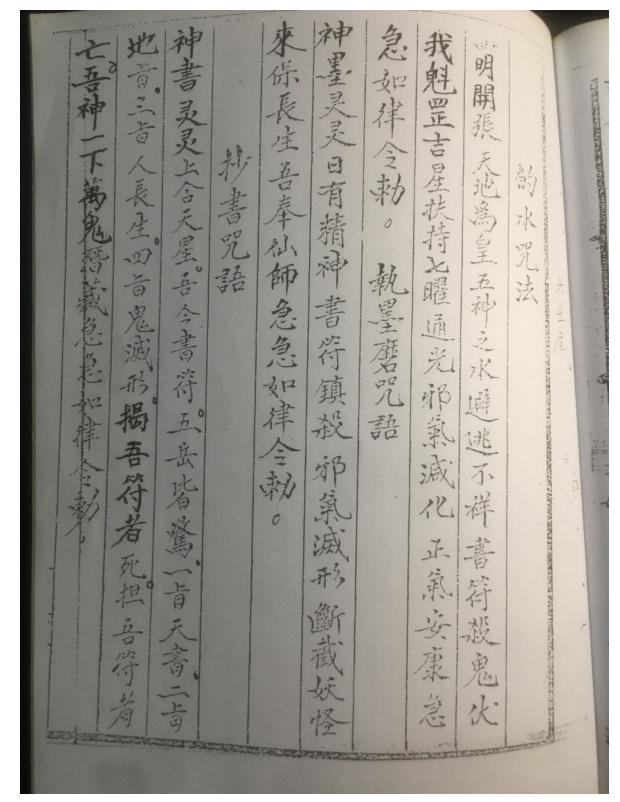 的水咒法
明開張天地為皇五神之水避逃不祥書符殺鬼伏
我魁罡吉星扶持七曜通光邪氣滅化正氣安康急
急如律令勅。 執墨磨咒語
神墨灵灵日有精神書符鎮殺邪氣滅形斷截妖怪
來保長生吾奉仙師急急如律令勅。
抄書咒語
神書灵灵上合天星。吾今書符。五岳皆驚、一旨天奮、二旨
地旨、三旨人長生。四旨鬼滅形。揭吾符者死。担吾符者
亡。吾神一下萬鬼暫藏急急如律令勅